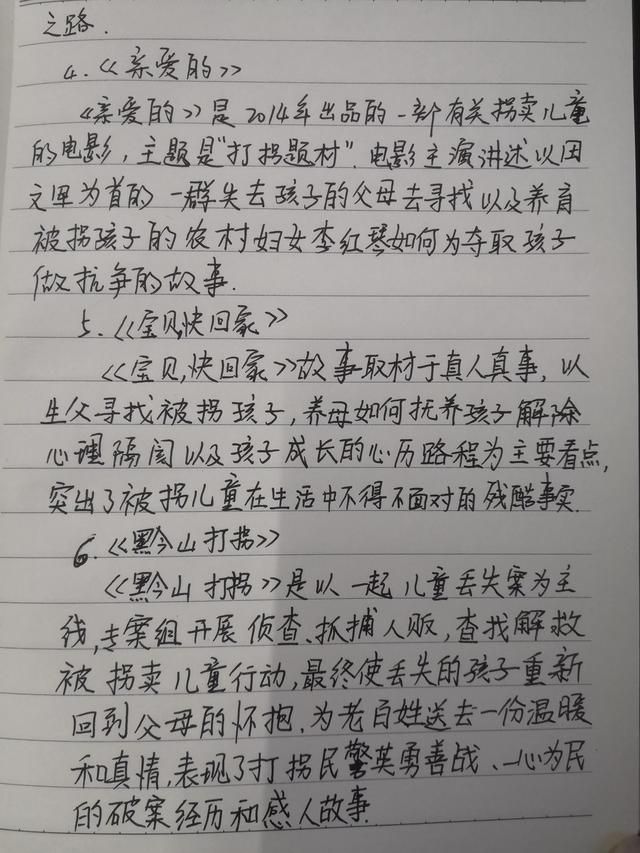 之路.
4.《亲爱的》
《亲爱的》是2014年出品的一部有关拐卖儿童
的电影,主题是"打拐题材".电影主演讲述以田
文军为首的一群失去孩子的父母去寻找以及养育
被拐孩子的农村妇女李红琴如何为夺取孩子
做抗争的故事.
5.《宝贝,快回家》
《宝贝,快回家》故事取材于真人真事,以
生父寻找被拐孩子,养母如何抚养孩子解除
心理隔阂以及孩子成长的心历路程为主要看点,
突出了被拐儿童在生活中不得不面对的残酷事实.
6.《黔山打拐》
《黔山打拐》是以一起儿童丢失案为主
线,专案组开展侦查、抓捕人贩,查找解救
被拐卖儿童行动,最终使丢失的孩子重新
回到父母的怀抱.为老百姓送去一份温暖
和真情,表现了打拐民警英勇善战、一心为民
的破案经历和感人故事.